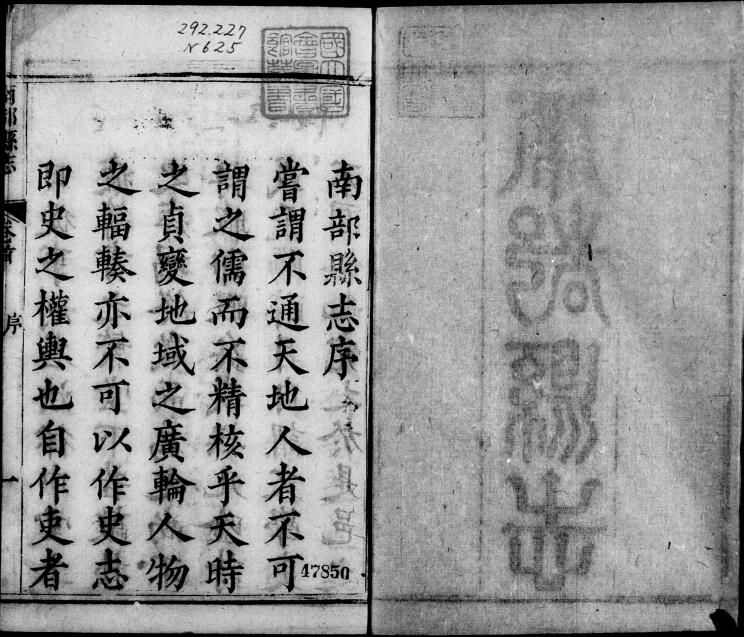 292.227
N625
南部縣志序
嘗謂不通天地人者不可
謂之儒而不精核乎天時
之貞變地域之廣輪人物
之輻輳亦不可以作史志
即史之權輿也自作吏者
南部縣志
卷首
序
一
47850